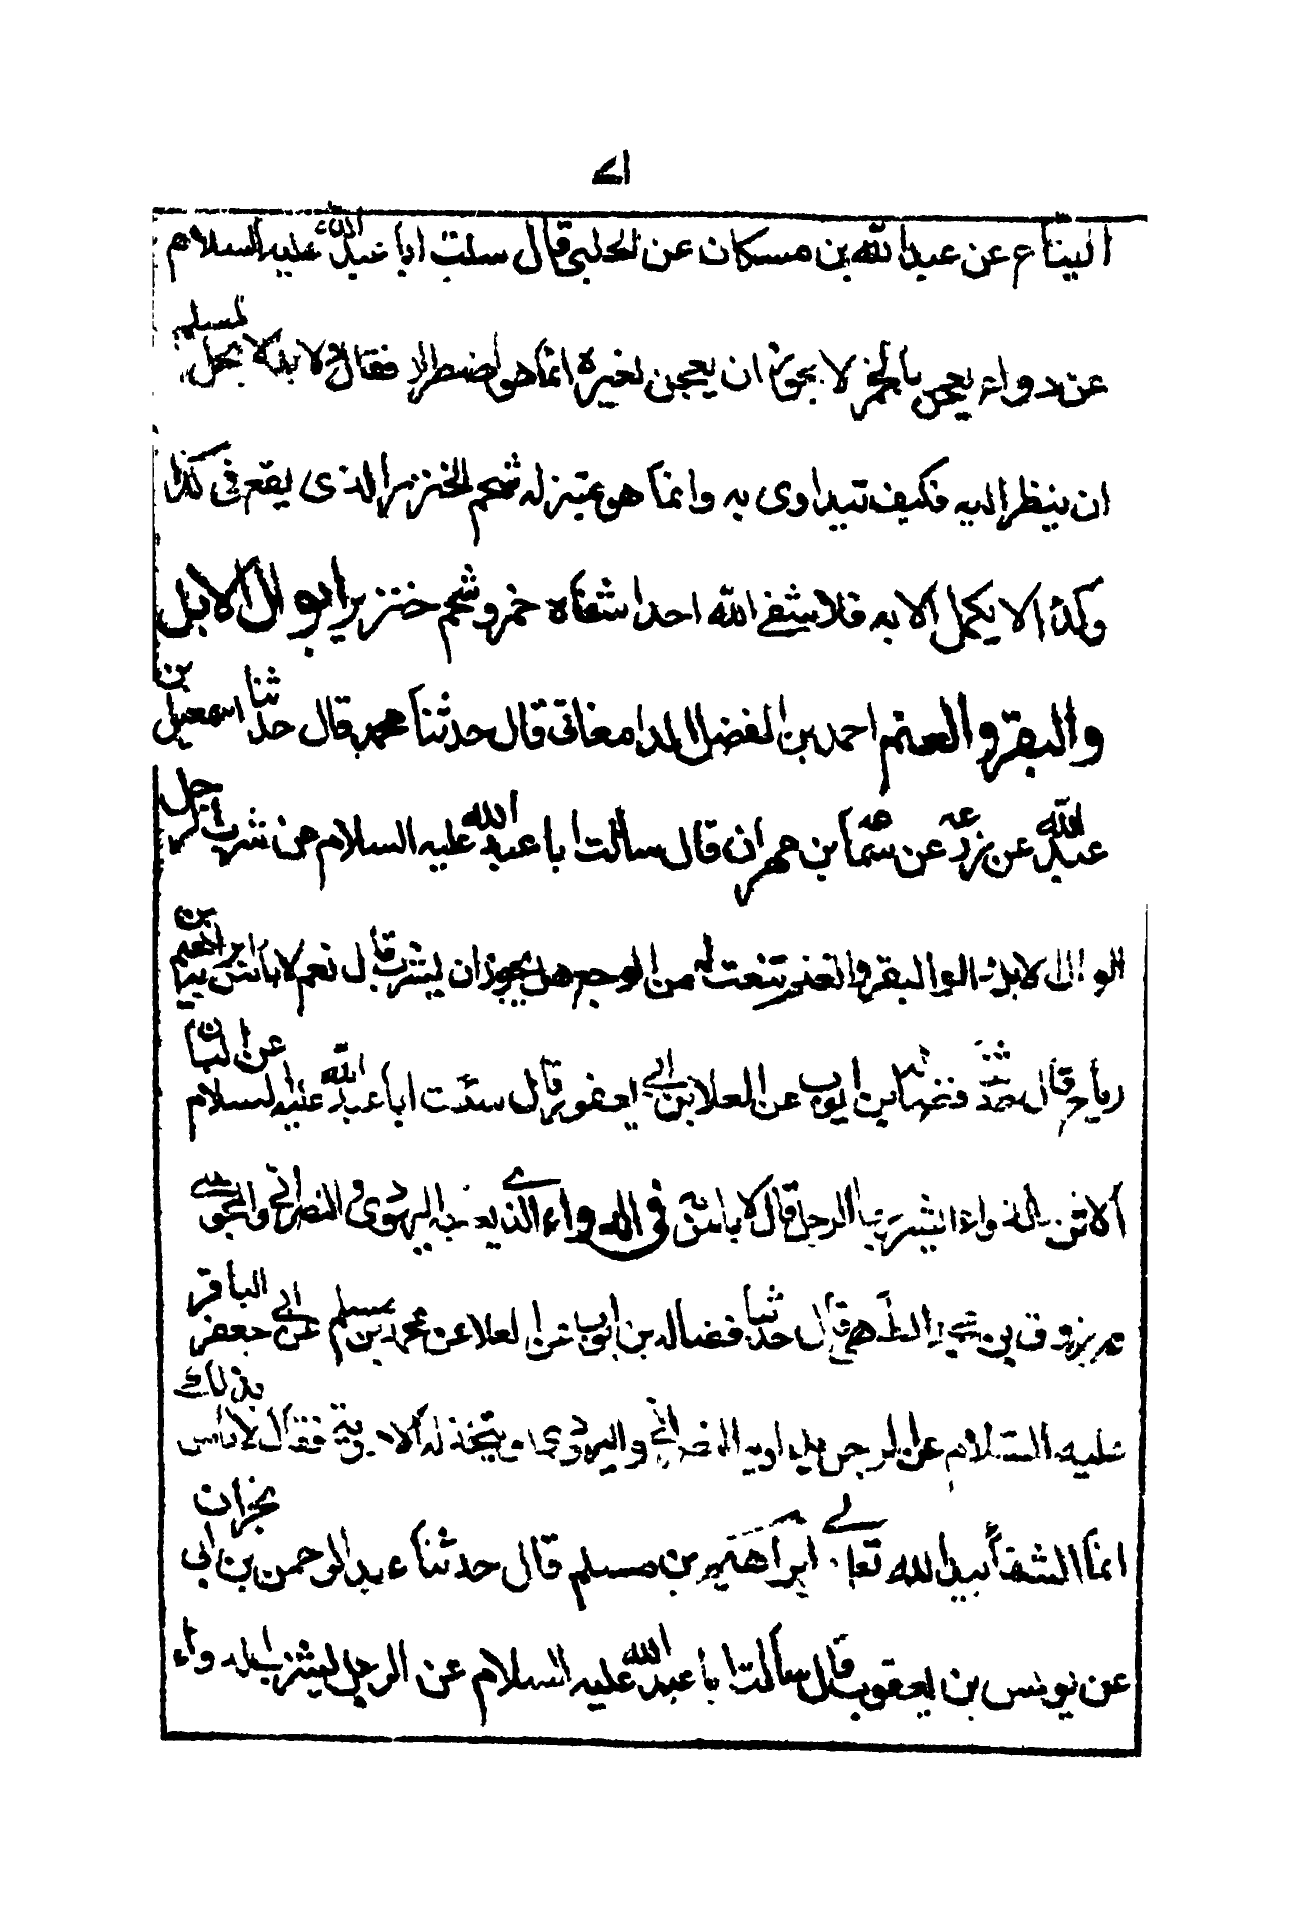 البيناع عن عبد الله بن مسكان عن الحلبى قال سلت ابا عبد الله عليه السلام
عن دواء يعجن بالخمر لا يجوز ان يعجن لغيره انما هو اضطرار فقال لا والله لا يحل لمسلم
ان ينظر اليه فكيف تيداوى به وانما هو بمنزله شحم الخنزير الذى يقع فى كذا
وكذا لا يكمل الا به فلا شفى الله احدا شفاه خمر وشحم خنزير ابوال الابل
والبقر والغنم احمد بن الفضل الدامغانى قال حدثنا محمد قال حدثنا اسمعيل بن
عبد الله عن زرعه عن سماعه بن مهران قال سألت ابا عبد الله عليه السلام عن شرب الرجل
ابوال الابل والبقر والغنم تنعت له من الوجع هل يجوز ان يشرب قال نعم لا باس به ابراهيم بن
رياح قال حدثنا فضاله بن ايوب عن العلا بن ابى يعفور قال سئلت ابا عبد الله عليه السلام عن البان
الاتن للدواء يشربها الرجل قال لا باس به فى الدواء الذى يعجنه اليهودى والنصرانى والمجوسى
مرزوق بن محمد الطائى قال حدثنا فضاله بن ايوب عن العلا عن محمد بن مسلم عن ابى جعفر الباقر
عليه السلام عن الرجل يداويه النصرانى واليهودى ويتخذ له الادويه فقال لا باس بذلك
انما الشفاء بيد الله تعالى ابراهيم بن مسلم قال حدثنا عبد الرحمن بن ابى نجران
عن يونس بن يعقوب قال سألت ابا عبد الله عليه السلام عن الرجل يشرب الدواء